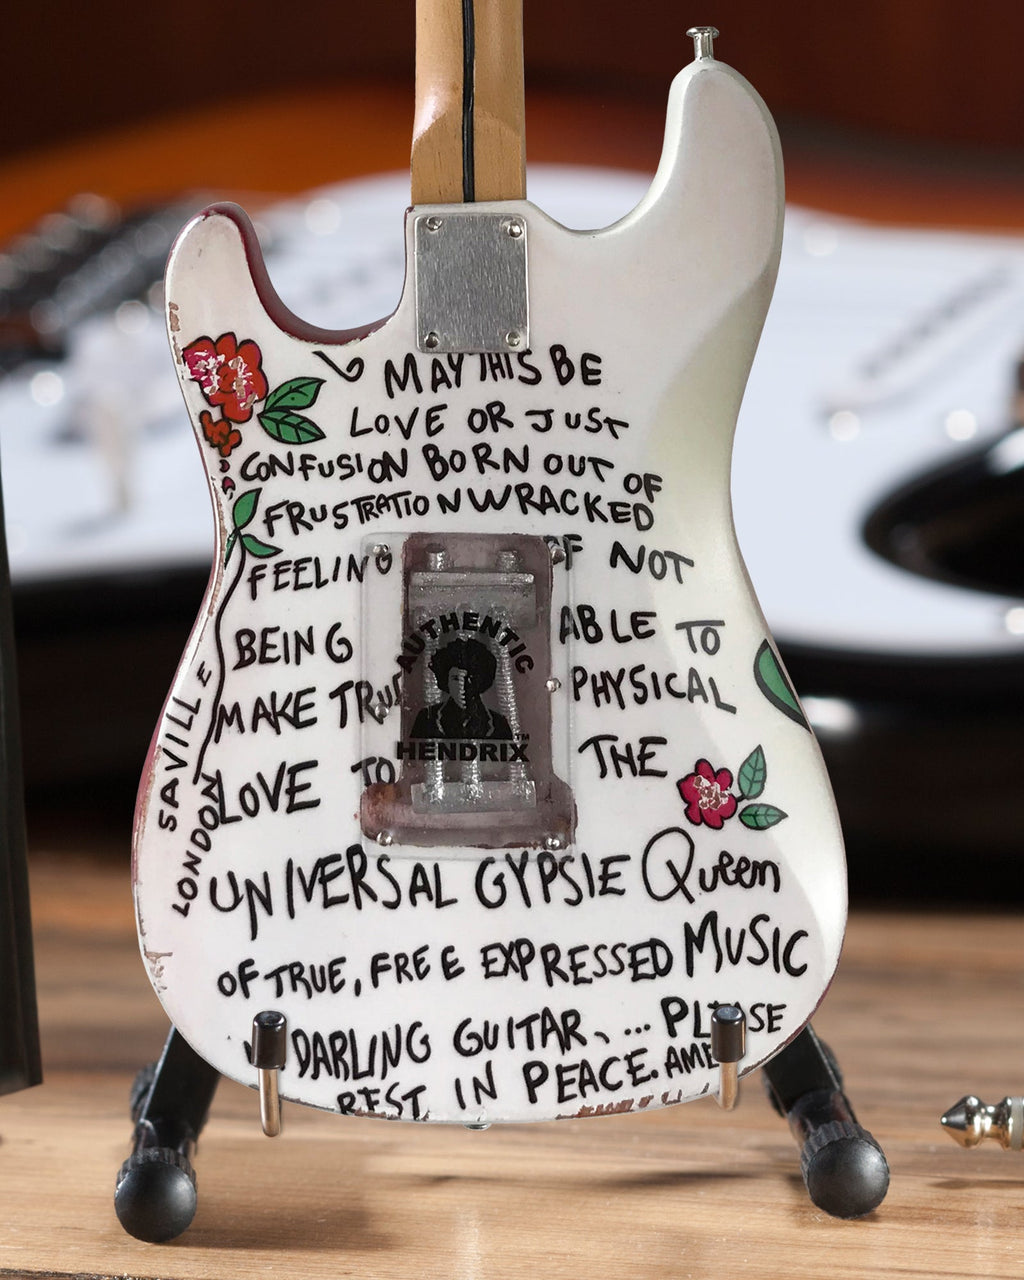 MAY THIS BE
LOVE OR JUST
CONFUSION BORN OUT OF
FRUSTRATION WRACKED
FEELING OF NOT
BEING ABLE TO
MAKE TRUE PHYSICAL
LOVE TO THE
UNIVERSAL GYPSIE Queen
OF TRUE, FREE EXPRESSED MUSIC
DARLING GUITAR, ... PLEASE
REST IN PEACE. AME
SAVILLE
LONDON
AUTHENTIC
HENDRIX™